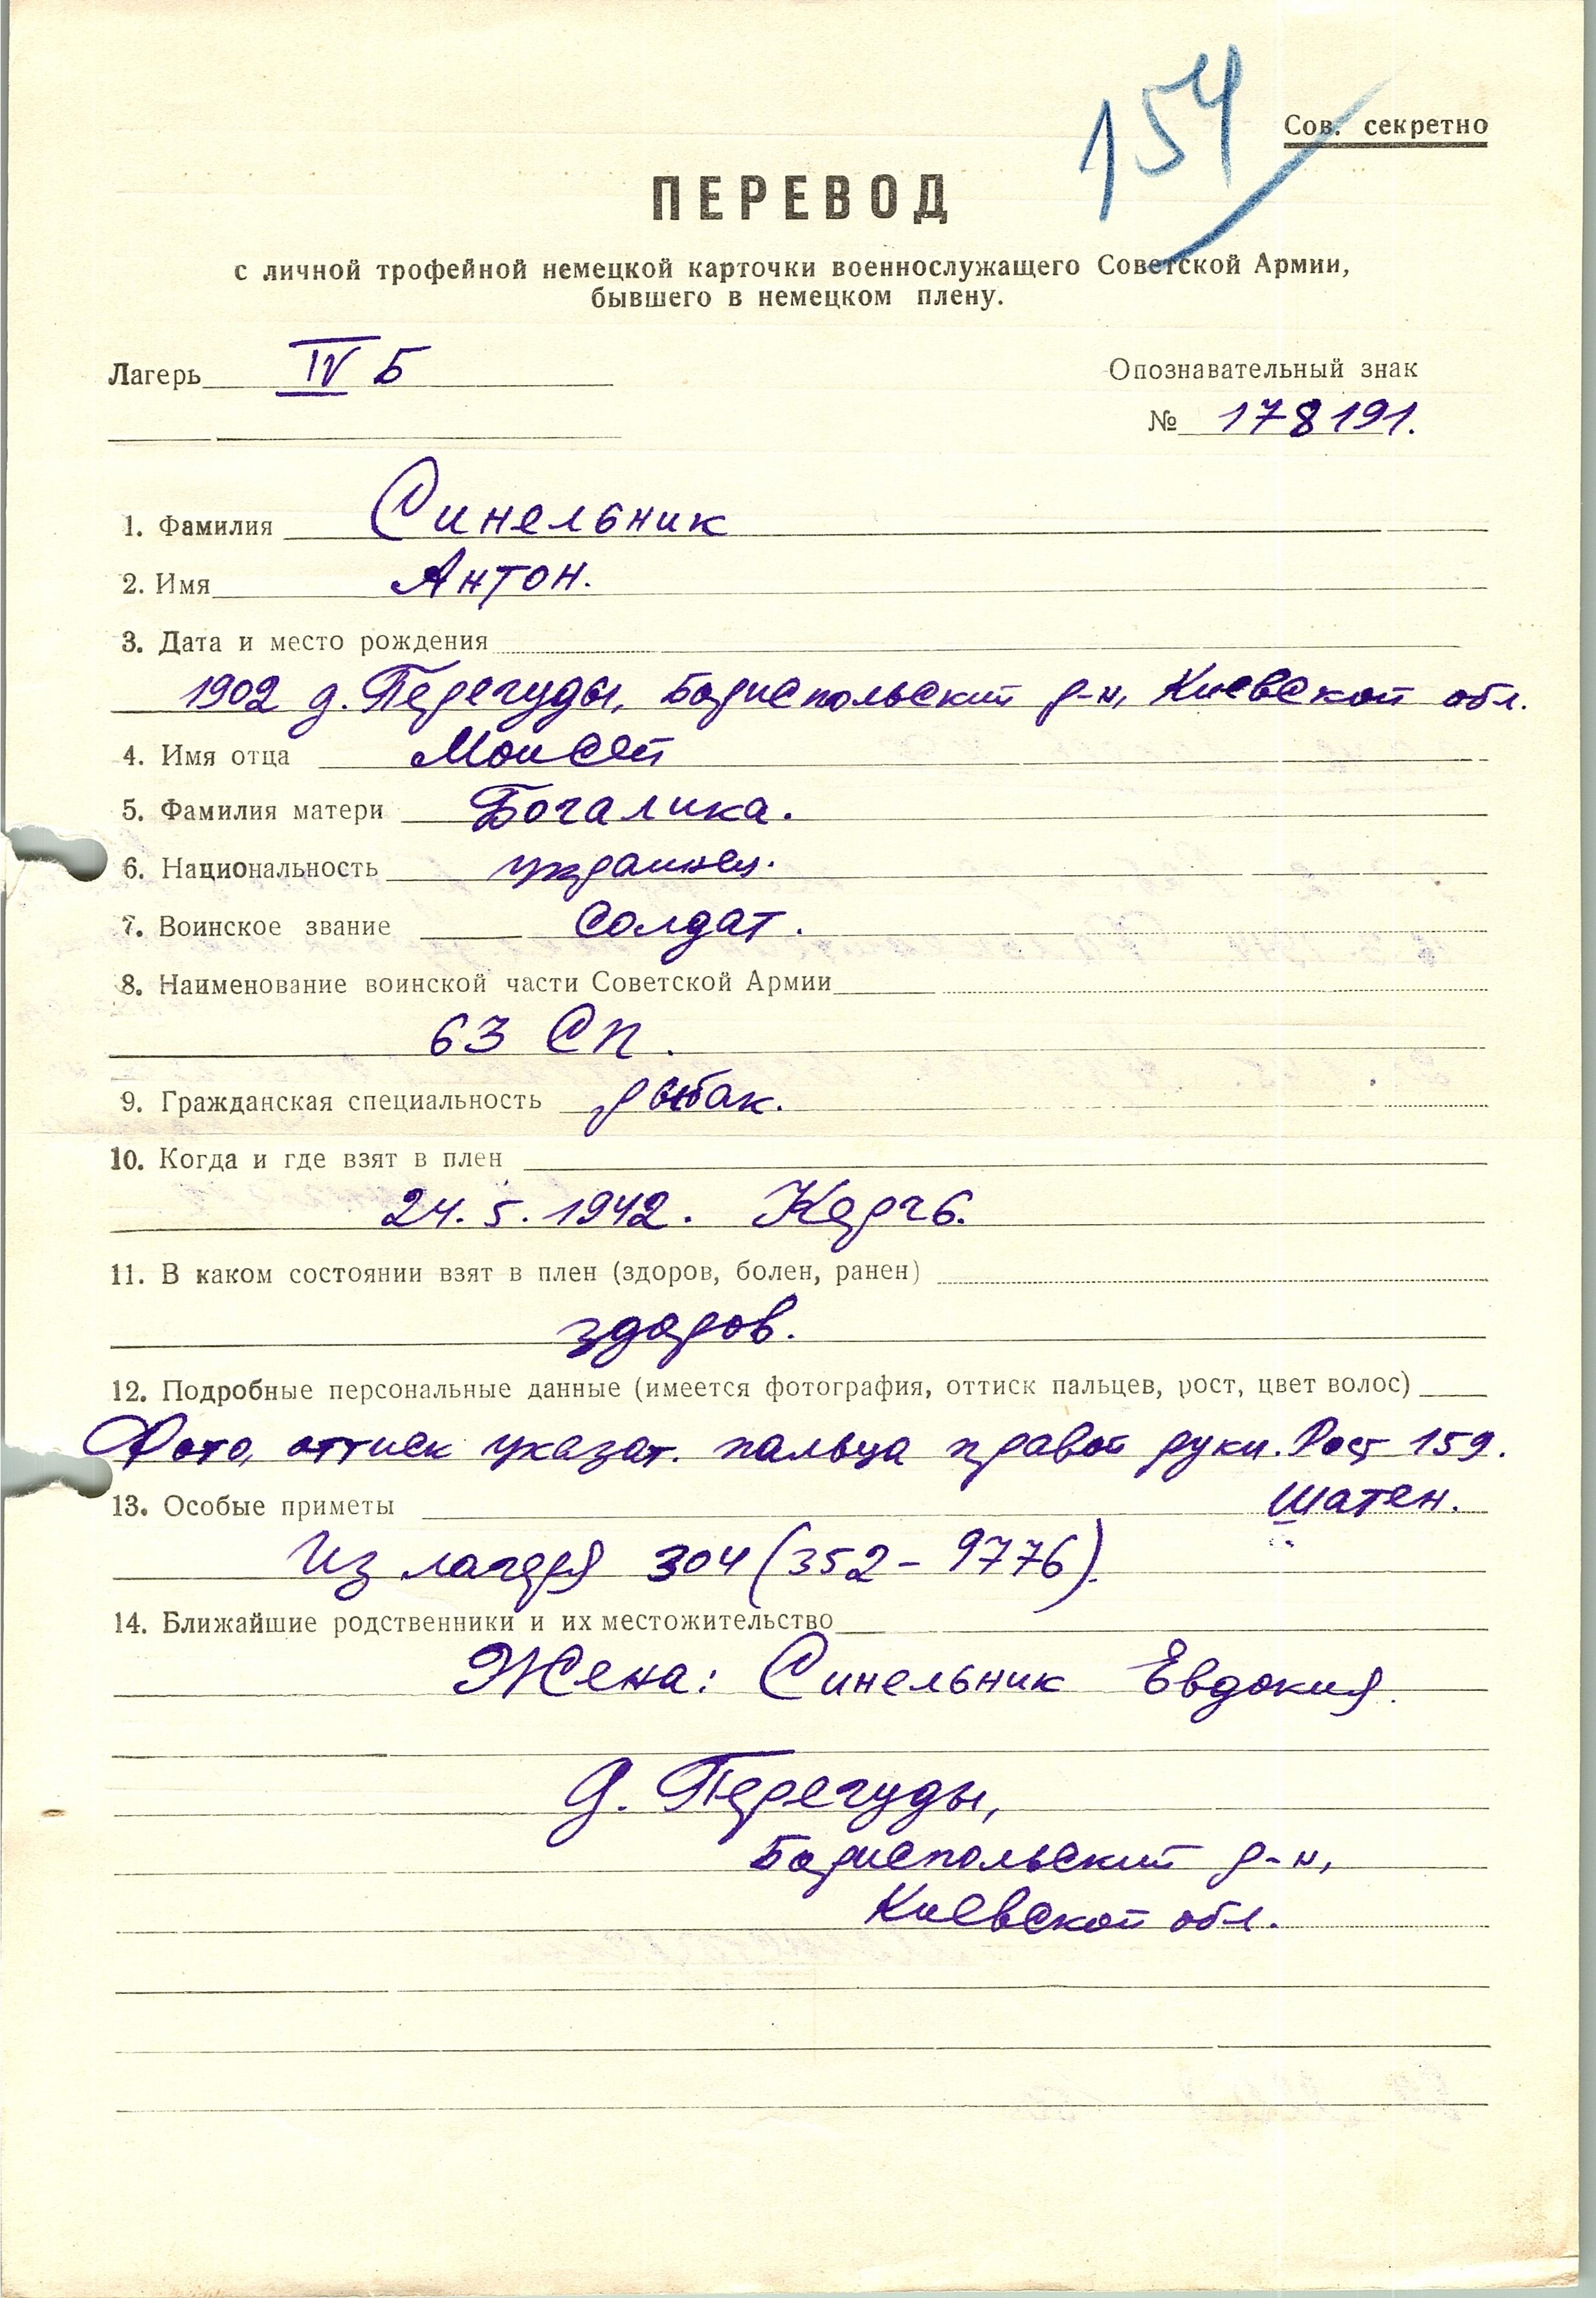 154
Сов. секретно
ПЕРЕВОД
с личной трофейной немецкой карточки военнослужащего Советской Армии,
бывшего в немецком плену.
Лагерь IV Б
Опознавательный знак
№ 178191.
1. Фамилия Синельник
2. Имя Антон.
3. Дата и место рождения
1902 д. Перегуды, Бориспольский р-н, Киевской обл.
4. Имя отца Моисей
5. Фамилия матери Богалика.
6. Национальность украинец.
7. Воинское звание солдат.
8. Наименование воинской части Советской Армии
63 СП.
9. Гражданская специальность рыбак.
10. Когда и где взят в плен
24.5.1942. Керчь.
11. В каком состоянии взят в плен (здоров, болен, ранен)
здоров.
12. Подробные персональные данные (имеется фотография, оттиск пальцев, рост, цвет волос)
Фото, оттиск указат. пальца правой руки. Рост 159.
шатен.
13. Особые приметы
Из лагеря 304 (352-9776).
14. Ближайшие родственники и их местожительство
Жена: Синельник Евдокия.
д. Перегуды,
Бориспольский р-н,
Киевской обл.